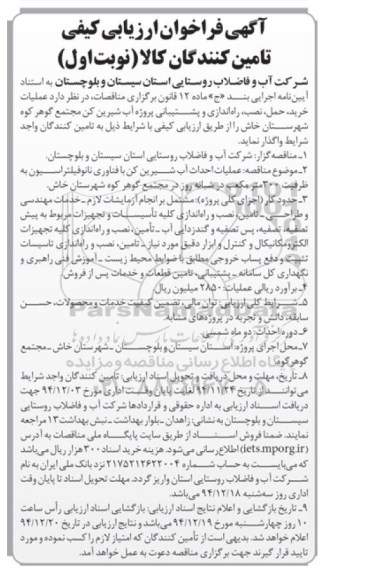 آگهی فراخوان ارزیابی کیفی
تامین کنندگان کالا (نوبت اول)
شرکت آب و فاضلاب روستایی استان سیستان و بلوچستان به استناد
آیین‌نامه اجرایی بند «ج» ماده ۱۲ قانون برگزاری مناقصات، در نظر دارد عملیات
خرید، حمل، نصب، راه‌اندازی و پشتیبانی پروژه آب شیرین کن مجتمع گوهر کوه
شهرستان خاش را از طریق ارزیابی کیفی با شرایط ذیل به تامین کنندگان واجد
شرایط واگذار نماید.
۱ـ مناقصه‌گزار: شرکت آب و فاضلاب روستایی استان سیستان و بلوچستان.
۲ـ موضوع مناقصه: عملیات احداث آب شیرین کن با فناوری نانوفیلتراسیون به
ظرفیت مترمکعب در شبانه روز در مجتمع گوهر کوه شهرستان خاش.
۳ـ حدود کار (اجرای کلی پروژه): مشتمل بر انجام آزمایشات لازم ـ خدمات مهندسی
و طراحی ـ تامین، نصب و راه‌اندازی کلیه تأسیسات و تجهیزات مربوط به پیش
تصفیه، تصفیه، پس تصفیه و گندزدایی آب ـ تأمین، نصب و راه‌اندازی کلیه تجهیزات
الکترومکانیکال و کنترل و ابزار دقیق مورد نیاز ـ تامین، نصب و راه‌اندازی تاسیسات
تثبیت و دفع پساب خروجی مطابق با ضوابط محیط زیست ـ آموزش فنی راهبری و
نگهداری کل سامانه ـ پشتیبانی، تامین قطعات و خدمات پس از فروش
۴ـ برآورد ریالی عملیات: ۲۸۵۰ میلیون ریال
۵ـ شرایط کلی ارزیابی: توان مالی، تضمین کیفیت خدمات و محصولات، حسن
سابقه، دانش و تجربه در پروژه‌های مشابه.
۶ـ دوره احداث: دو ماه شمسی
۷ـ محل اجرای پروژه: استان سیستان و بلوچستان ـ شهرستان خاش ـ مجتمع
گوهرکوه.
۸ـ تاریخ، مهلت و محل دریافت و تحویل اسناد ارزیابی: تأمین کنندگان واجد شرایط
می‌توانند از تاریخ ۹۴/۱۱/۲۴ لغایت پایان وقت اداری مورخ ۹۴/۱۲/۰۳ جهت
دریافت اسناد ارزیابی به اداره حقوقی و قراردادها شرکت آب و فاضلاب روستایی
سیستان و بلوچستان به نشانی: زاهدان ـ بلوار بهداشت ـ نبش بهداشت ۱۳ مراجعه
نمایند. ضمنا فروش اسناد از طریق سایت پایگاه ملی مناقصات به آدرس
(iets.mporg.ir) اطلاع رسانی می‌شود. هزینه خرید اسناد ۳۰۰ هزار ریال می‌باشد
که می‌بایست به حساب شماره ۲۱۷۵۲۱۲۶۲۲۰۰۴ نزد بانک ملی ایران به نام
شرکت آب و فاضلاب روستایی استان واریز گردد. مهلت تحویل اسناد تا پایان وقت
اداری روز سه‌شنبه ۹۴/۱۲/۱۸ می‌باشد.
۹ـ تاریخ بازگشایی و اعلام نتایج اسناد ارزیابی: بازگشایی اسناد ارزیابی رأس ساعت
۱۰ روز چهارشنبه مورخ ۹۴/۱۲/۱۹ می‌باشد و نتایج ارزیابی در تاریخ ۹۴/۱۲/۲۰
اعلام خواهد شد. بدیهی است از تأمین کنندگان که امتیاز لازم را کسب نموده و مورد
تایید قرار گیرند جهت برگزاری مناقصه دعوت به عمل خواهد آمد.